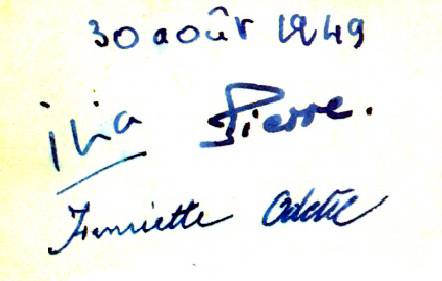 30 août 1949
ilia Pierre.
Henriette Odette